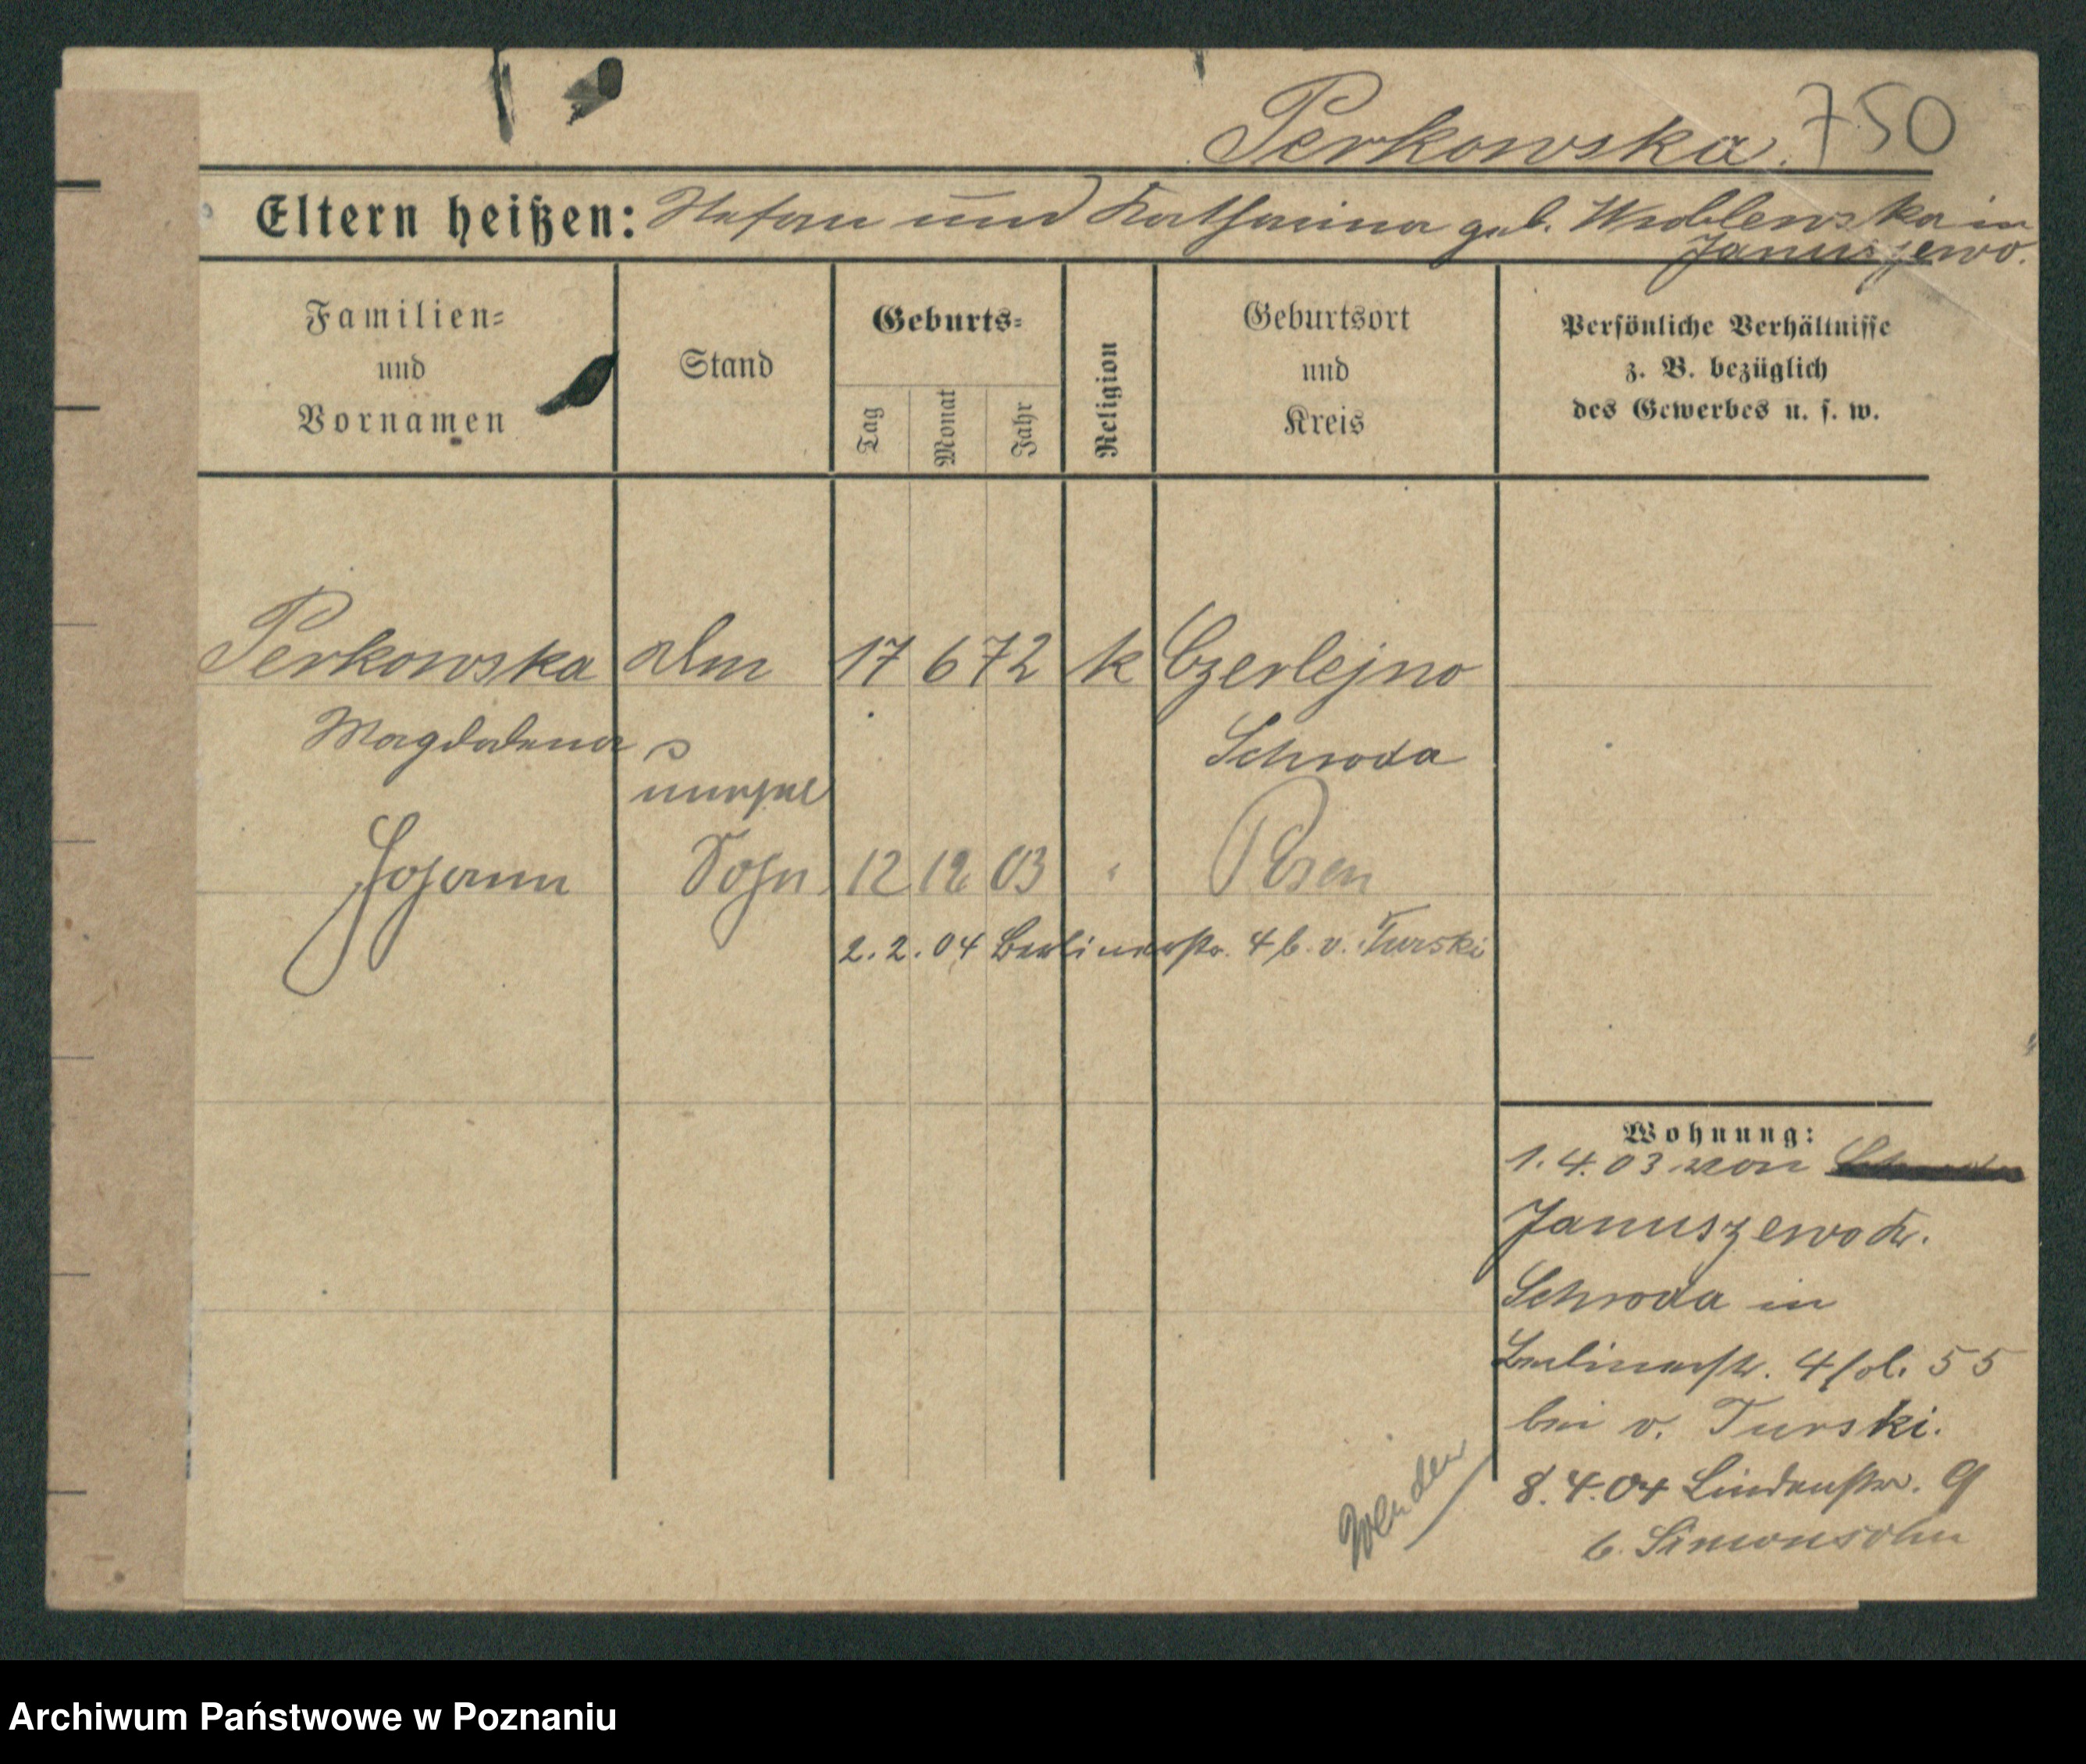 Perkowska. 750
Eltern heißen: Stefan und Katharina geb. Wroblewska in
Januszewo.
Familien-
und
Vornamen
Stand
Geburts-
Tag
Monat
Jahr
Religion
Geburtsort
und
Kreis
Persönliche Verhältnisse
z. B. bezüglich
des Gewerbes u. s. w.
Perkowska 17 6 72 k Czerlejno
Magdalena Schroda
unehel
Johann Sohn 12 12 03 " Posen
2.2.04 Berlinerstr. 4 b. v. Turski
Wohnung:
1.4.03 von
Januszewo Kr.
Schroda in
Berlinerstr. 4 55
bei v. Turski.
8.4.04 Lindenstr. 9
b. Simonsohn
Wenden
Archiwum Państwowe w Poznaniu